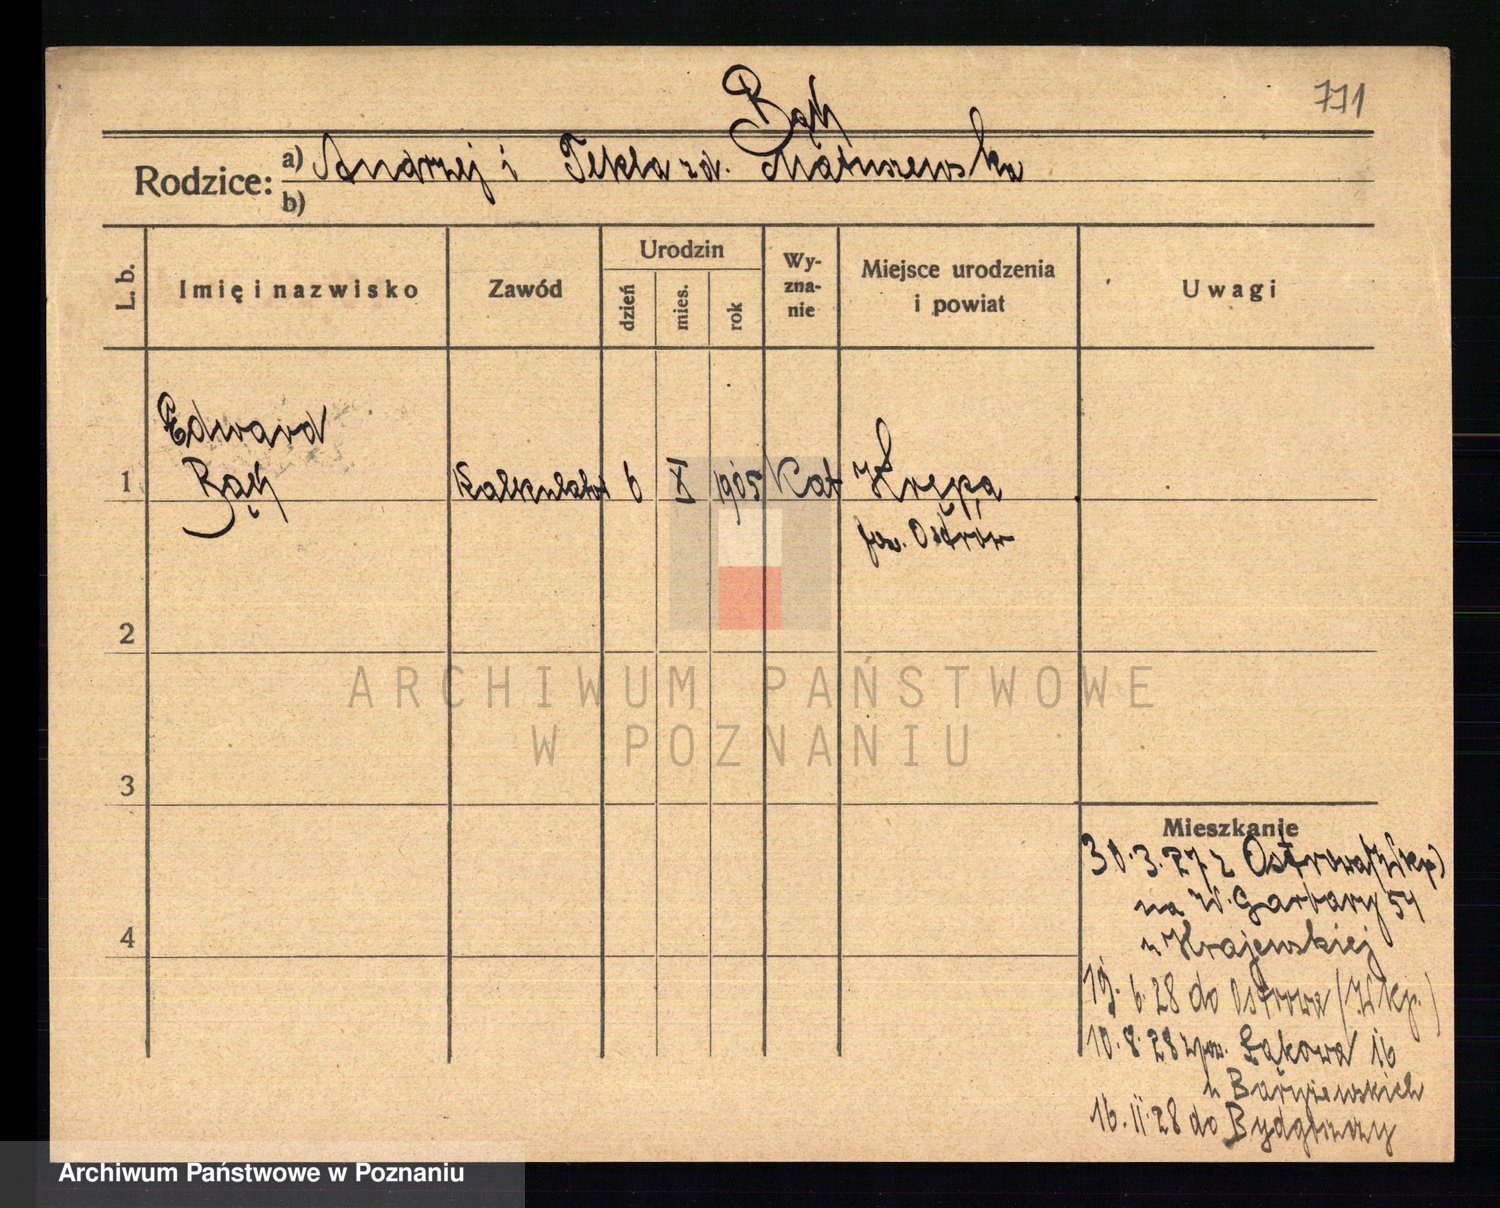 Bąk
771
Rodzice: a) Andrzej i Tekla zd. Matuszewska
b)
L. b.
Imię i nazwisko
Zawód
Urodzin
dzień
mies.
rok
Wy-
zna-
nie
Miejsce urodzenia
i powiat
Uwagi
Edward
1 Bąk Kalkulator 6 X 1905 Kat Krępa
pow. Ostrów
2
ARCHIWUM PAŃSTWOWE
W POZNANIU
3
Mieszkanie
30.3.27 z Ostrowa (Wlkp)
na W. Garbary 54
u Krajewskiej
4
19.6.28 do Ostrowa (Wlkp.)
10.8.28 z pow. Łąkowa 16
u
16.11.28 do Bydgoszczy
Archiwum Państwowe w Poznaniu